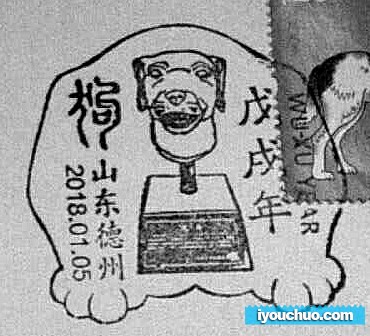 狗
山东德州
2018.01.05
戊戌年
WU-XU YEAR
iyouchuo.com